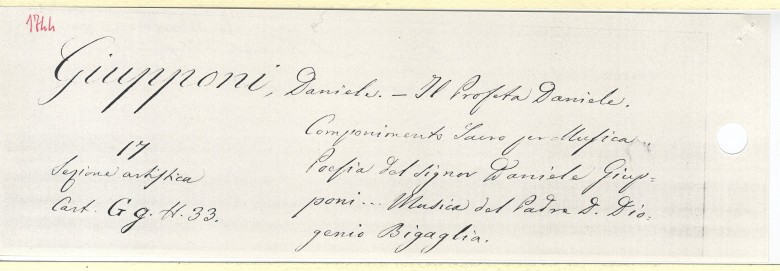 1744
Giupponi, Daniele. — Il Profeta Daniele.
Componimento Sacro per Musica.
Poesia del Signor Daniele Giup-
poni... Musica del Padre D. Dio-
genio Bigaglia.
17
Sezione artistica
Cart. Gg. H. 33.